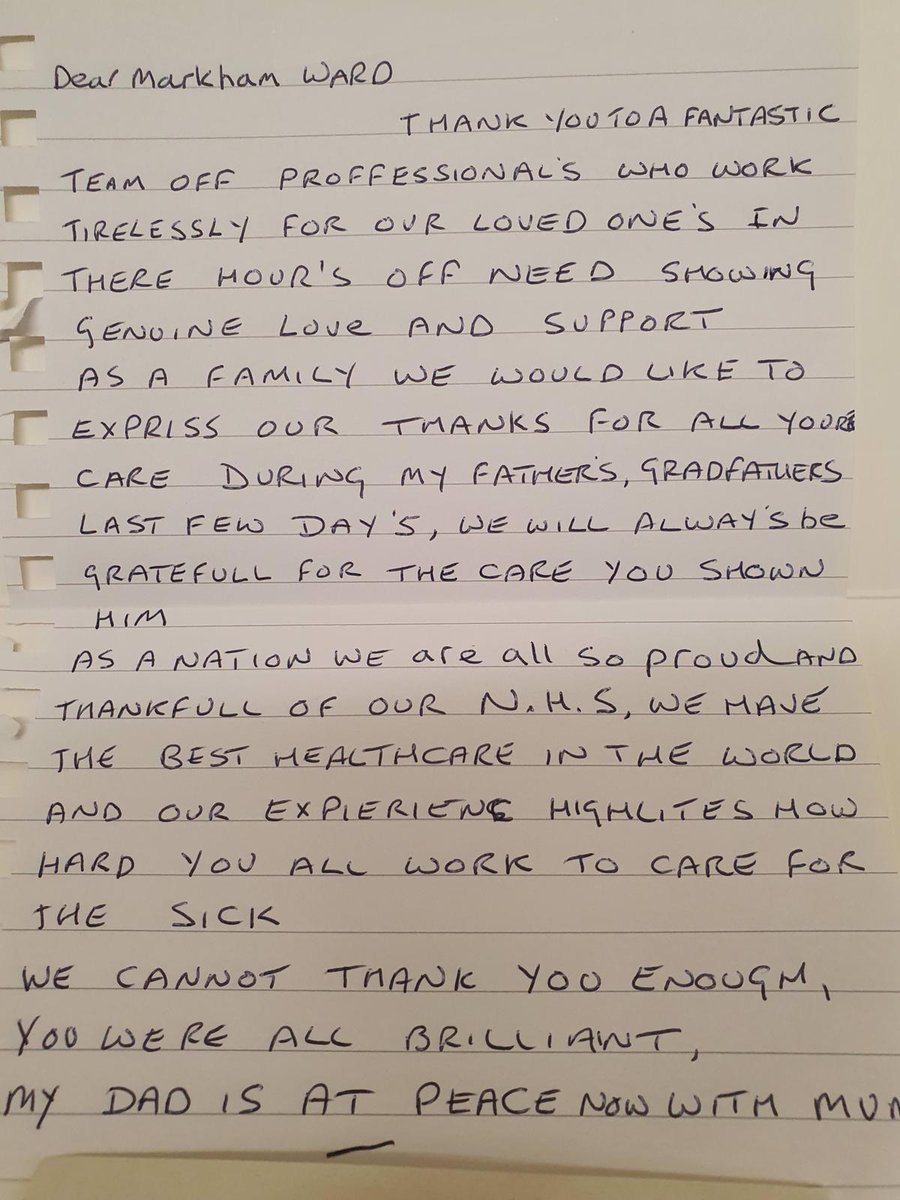 Dear Markham WARD
THANK YOU TO A FANTASTIC
TEAM OFF PROFFESSIONAL'S WHO WORK
TIRELESSLY FOR OUR LOVED ONE'S IN
THERE HOUR'S OFF NEED SHOWING
GENUINE LOVE AND SUPPORT
AS A FAMILY WE WOULD LIKE TO
EXPRISS OUR THANKS FOR ALL YOUR
CARE DURING MY FATHER'S, GRADFATHERS
LAST FEW DAY'S, WE WILL ALWAY'S be
GRATEFULL FOR THE CARE YOU SHOWN
HIM
AS A NATION WE are all so proud AND
THANKFULL OF OUR N.H.S, WE HAVE
THE BEST HEALTHCARE IN THE WORLD
AND OUR EXPIERIENCE HIGHLITES HOW
HARD YOU ALL WORK TO CARE FOR
THE SICK
WE CANNOT THANK YOU ENOUGH,
YOU WERE ALL BRILLIANT,
MY DAD IS AT PEACE NOW WITH MUM